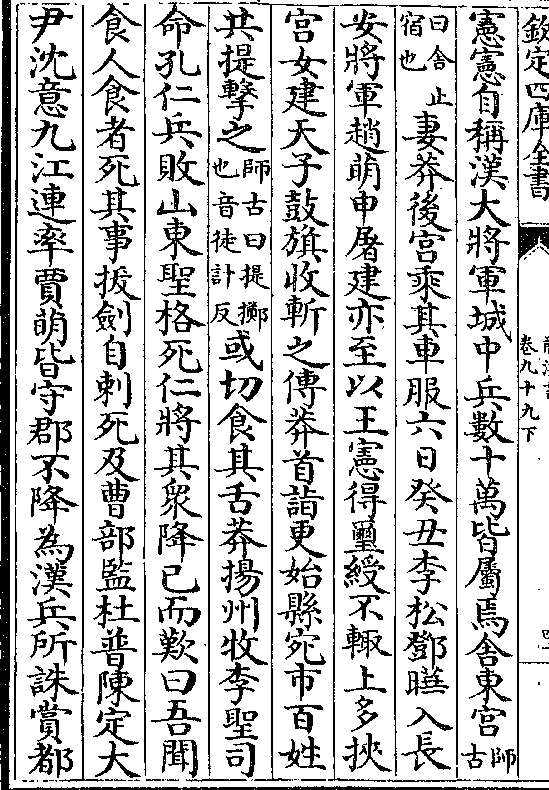 欽定四庫全書
卷九十九下
憲憲自稱漢大將軍城中兵數十萬皆屬焉舍東宮師古
曰舍止宿也妻莽後宮乘其車服六日癸丑李松鄧曄入長
安將軍趙萌申屠建亦至以王憲得璽綬不輒上多挾
宮女建天子鼓旗收斬之傳莽首詣更始縣宛市百姓
共提擊之師古曰提擲也音徒計反或切食其舌莽揚州牧李聖司
命孔仁兵敗山東聖格死仁將其衆降已而歎曰吾聞
食人食者死其事拔劍自刺死及曹部監杜普陳定大
尹沈意九江連率賈萌皆守郡不降為漢兵所誅賞都